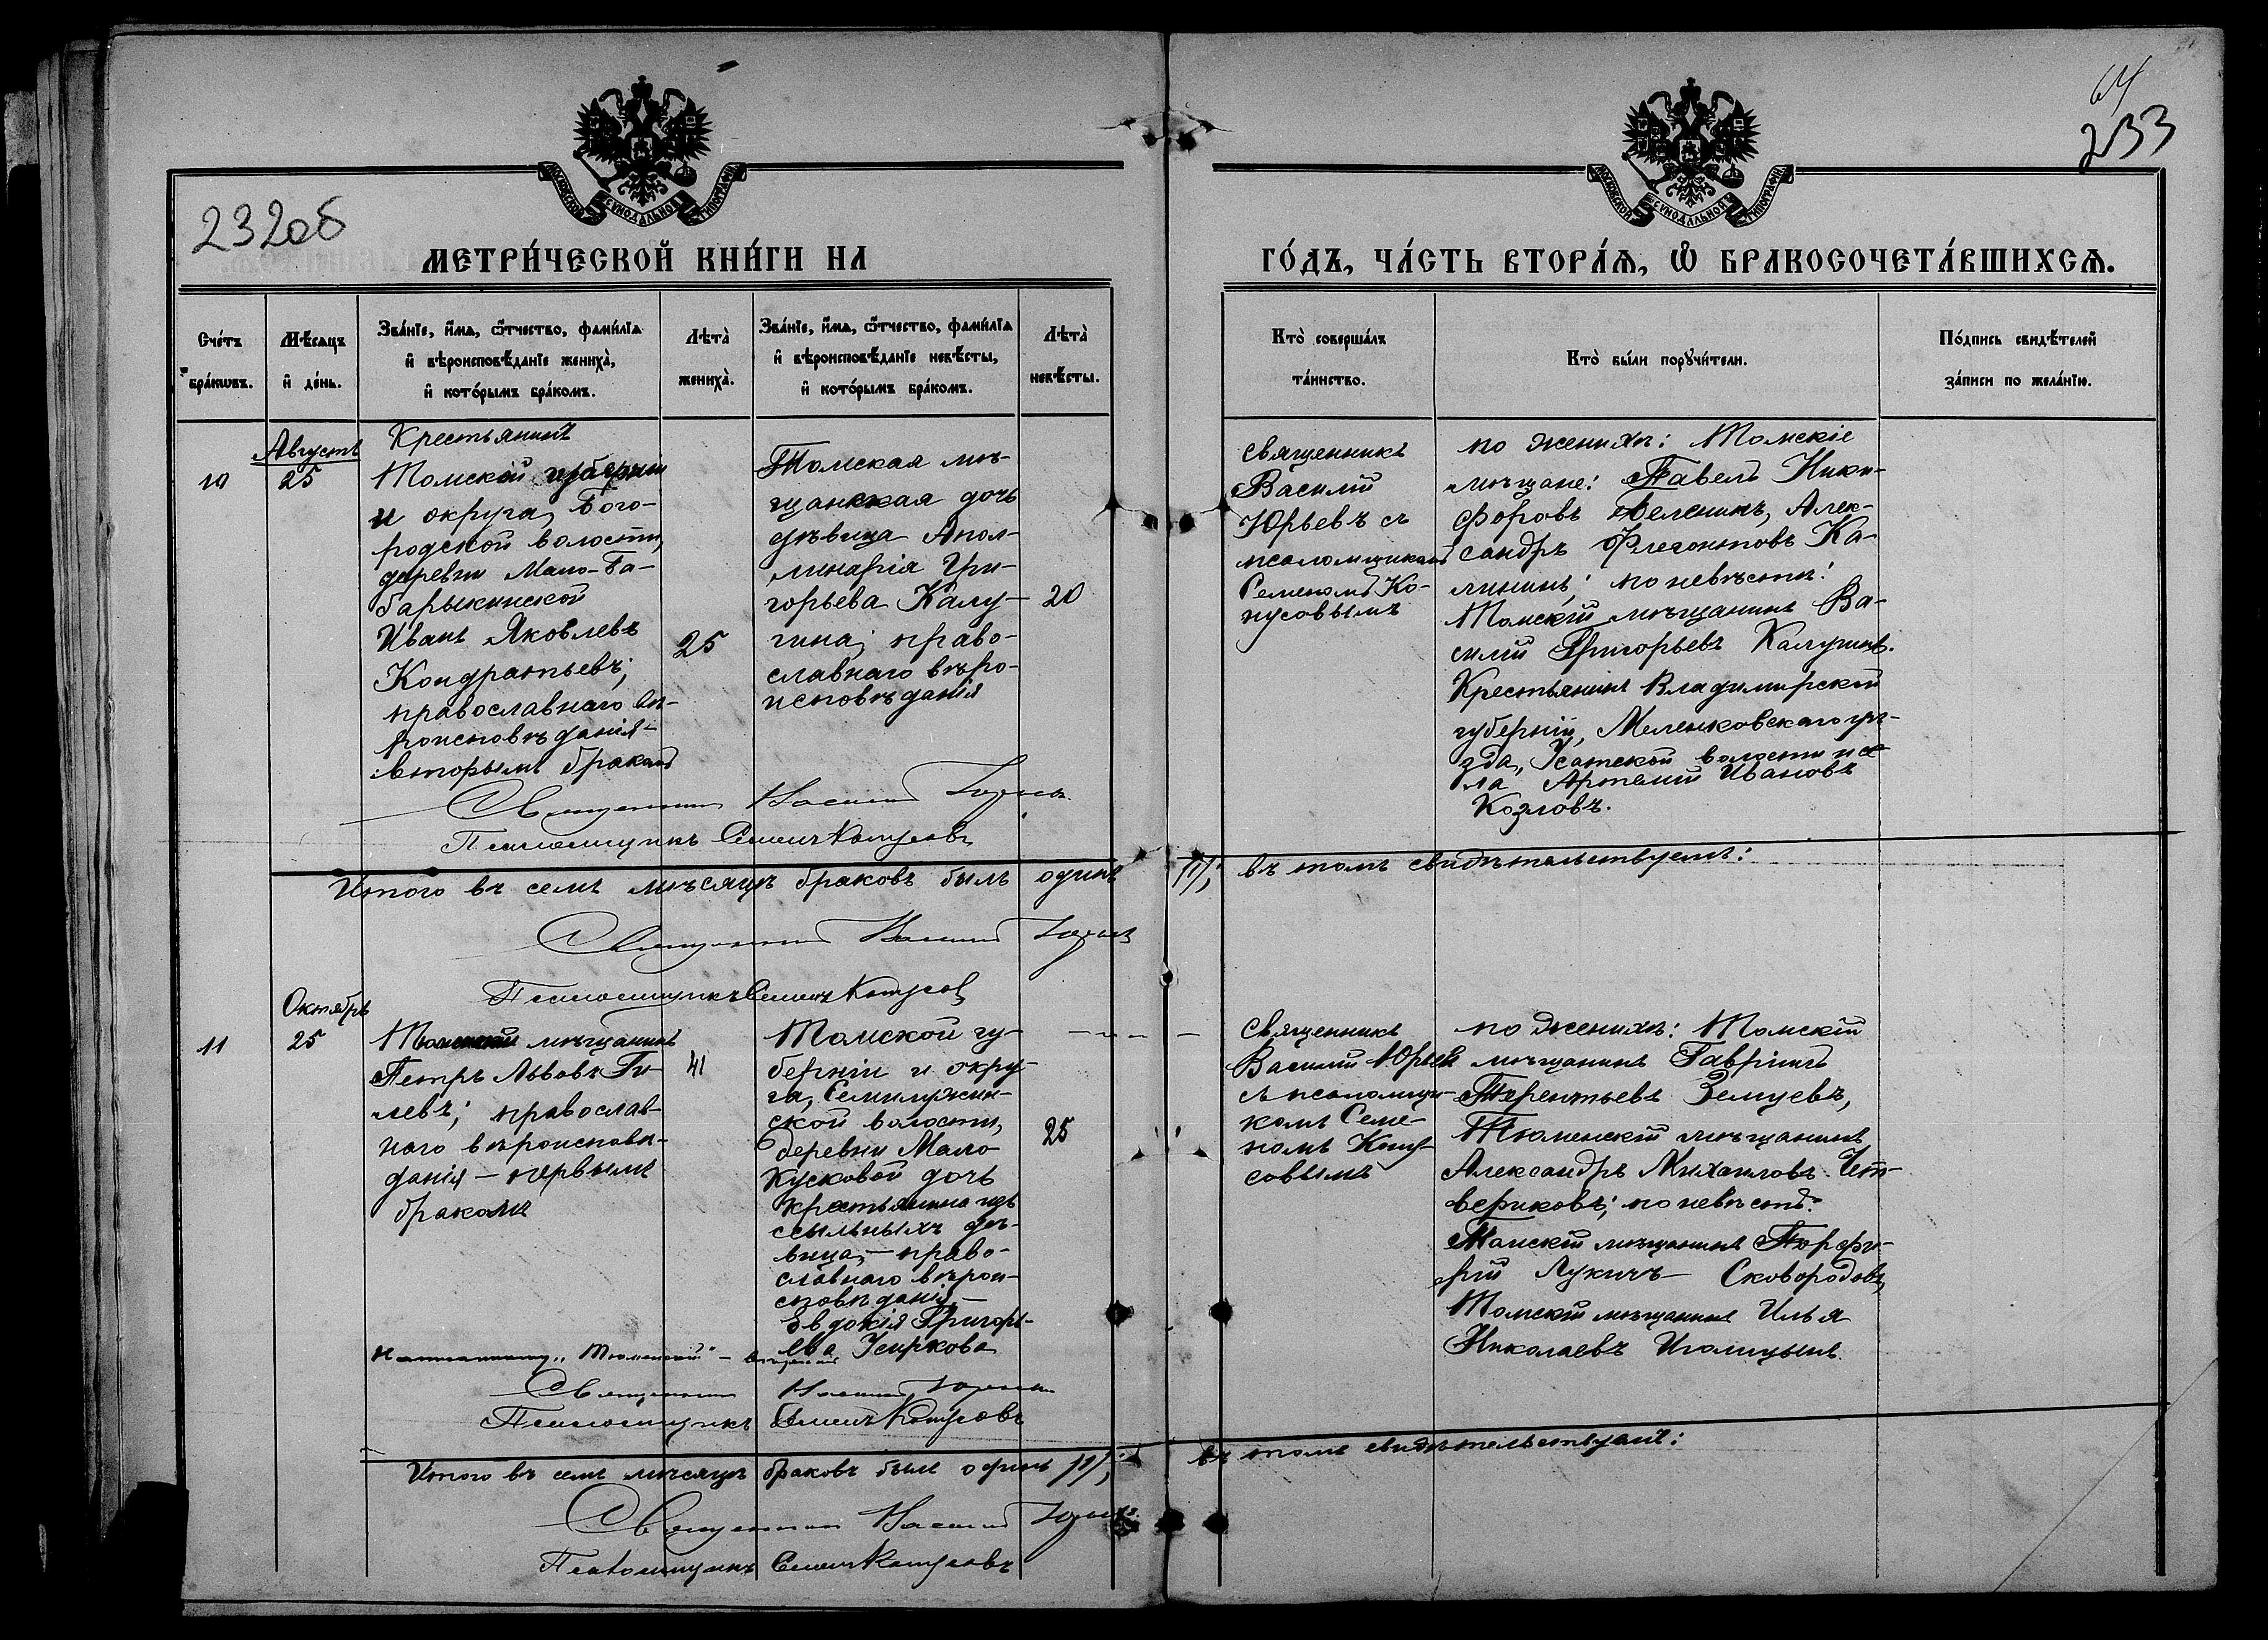 64
233
232об
МОСКОВСКОЙ СѴНОДАЛЬНОЙ ТИПОГРАФІИ
МОСКОВСКОЙ СѴНОДАЛЬНОЙ ТИПОГРАФІИ
МЕТРИ́ЧЕСКОЙ КНИ́ГИ НА
ГО́ДЪ, ЧА́СТЬ ВТОРА́Ѧ, Ѡ҆ БРАКОСОЧЕТА́ВШИХСѦ.
Сче́тъ
бра́кѡвъ.
Мѣ́сѧцъ
и҆ де́нь.
Зва́нїе, и҆́мѧ, ѻ҆́тчество, фами́лїѧ
и҆ вѣроисповѣ́данїе жениха̀,
и҆ кото́рымъ бра́комъ.
Лѣта̀
жениха̀.
Зва́нїе, и҆́мѧ, ѻ҆́тчество, фами́лїѧ
и҆ вѣроисповѣ́данїе невѣ́сты,
и҆ кото́рымъ бра́комъ.
Лѣта̀
невѣ́сты.
Кто̀ соверша́лъ
та́инство.
Кто̀ бы́ли порꙋчи́тели.
По́дпись свидѣ́телей
за́писи по жела́нїю.
10
Августъ
25
Крестьянинъ
Томской губерніи
и округа, Бого-
родской волости,
деревни Мало-Ба-
барыкинской
Иванъ Яковлевъ
Кондратьевъ;
православнаго вѣ-
роисповѣданія-
вторымъ бракомъ
25
Томская мѣ-
щанская дочь
дѣвица Апол-
линарія Гри-
горьева Калу-
гина; право-
славнаго вѣро-
исповѣданія
20
священникъ
Василій
Юрьевъ съ
псаломщикомъ
Семеномъ Ко-
пусовымъ
по женихѣ: Томскіе
мѣщане: Павелъ Ники-
форовъ Зеленинъ, Алек-
сандръ Флегонтовъ Ка-
лининъ; по невѣстѣ:
Томскій мѣщанинъ Ва-
силій Григорьевъ Калугинъ.
Крестьянинъ Владимирской
губерніи, Меленковскаго уѣ-
зда, Усатской волости и се-
ла Артемій Ивановъ
Козловъ.
Священникъ Василій Юрьевъ
Псаломщикъ Семенъ Копусовъ
Итого въ семъ мѣсяцѣ браковъ былъ одинъ /1/; въ томъ свидѣтельствуемъ:
Священникъ Василій Юрьевъ
Псаломщикъ Семенъ Копусовъ
11
Октябрь
25
Томскій мѣщанинъ
Петръ Львовъ Ги-
левъ; православ-
наго вѣроисповѣ-
данія - первымъ
бракомъ
41
Томской гу-
берніи и окру-
га, Семилужин-
ской волости,
деревни Мало
Кусковой дочь
крестьянина изъ
ссыльныхъ дѣ-
вица, - право-
славнаго вѣрои-
сповѣданія -
Евдокія Григорь-
ева Усиркова
25
священникъ
Василій Юрьевъ
съ псаломщи-
комъ Семе-
номъ Копу-
совымъ
по женихѣ: Томскій
мѣщанинъ Гавріилъ
Терентьевъ Земцевъ,
Тюменскій мѣщанинъ
Александръ Михаиловъ Чет-
вериковъ; по невѣстѣ:
Томскій мѣщанинъ Порфи-
рій Лукичъ Сковородовъ,
Томскій мѣщанинъ Илья
Николаевъ Иголицынъ.
Написанному „Тюменскій" -
Священникъ Василій Юрьевъ
Псаломщикъ Семенъ Копусовъ
Итого въ семъ мѣсяцѣ браковъ былъ одинъ /1/; въ томъ свидѣтельствуемъ:
Священникъ Василій Юрьевъ
Псаломщикъ Семенъ Копусовъ